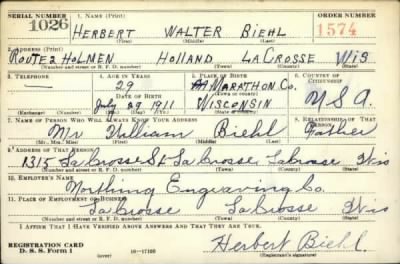 SERIAL NUMBER 1026
1. NAME (Print)
ORDER NUMBER 1574
HERBERT WALTER BIEHL
(First) (Middle) (Last)
2. ADDRESS (Print)
ROUTE 2 HOLMEN HOLLAND LACROSSE WIS
(Number and street or R. F. D. number) (Town) (County) (State)
3. TELEPHONE
—
4. AGE IN YEARS
29
DATE OF BIRTH
July 29 1911
5. PLACE OF BIRTH
MARATHON CO.
(Town or county)
WISCONSIN
(State or country)
6. COUNTRY OF CITIZENSHIP
USA
7. NAME OF PERSON WHO WILL ALWAYS KNOW YOUR ADDRESS
Mr William Biehl
(Mr., Mrs., Miss) (First) (Middle) (Last)
8. RELATIONSHIP OF THAT PERSON
Father
9. ADDRESS OF THAT PERSON
1315 La Crosse St La Crosse, La Crosse Wis
(Number and street or R. F. D. number) (Town) (County) (State)
10. EMPLOYER'S NAME
Northing Engraving Co.
11. PLACE OF EMPLOYMENT OR BUSINESS
La Crosse La Crosse Wis
(Number and street or R. F. D. number) (Town) (County) (State)
I AFFIRM THAT I HAVE VERIFIED ABOVE ANSWERS AND THAT THEY ARE TRUE.
REGISTRATION CARD
D. S. S. Form 1
(over)
16—17105
Herbert Biehl.
(Registrant's signature)